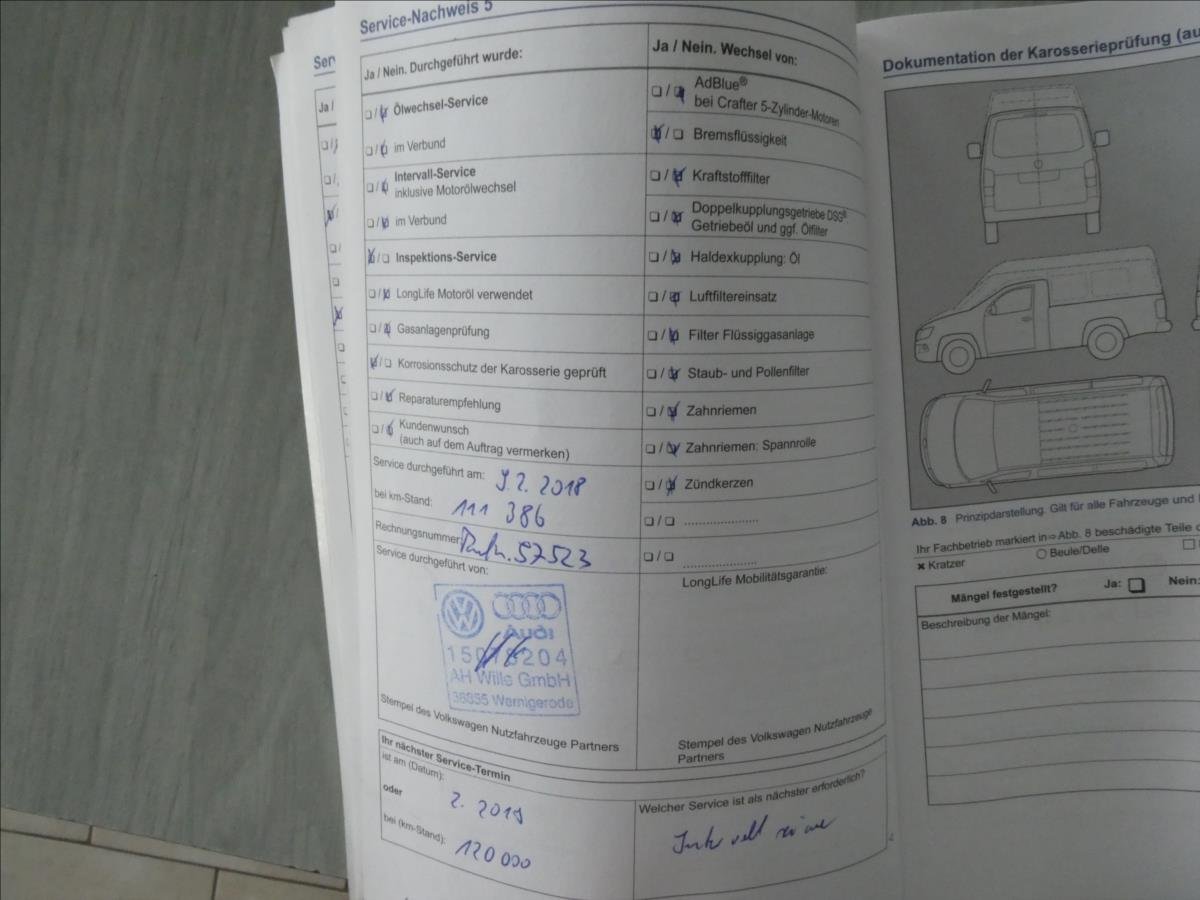 Service-Nachweis 5
Ja / Nein. Durchgeführt wurde:
Ölwechsel-Service
im Verbund
Intervall-Service
inklusive Motorölwechsel
im Verbund
Inspektions-Service
LongLife Motoröl verwendet
Gasanlagenprüfung
Korrosionsschutz der Karosserie geprüft
Reparaturempfehlung
Kundenwunsch
(auch auf dem Auftrag vermerken)
Service durchgeführt am: 9.2.2018
bei km-Stand: 111 386
Rechnungsnummer: 57523
Service durchgeführt von:
Audi
204
AH Wille GmbH
Wernigerode
Stempel des Volkswagen Nutzfahrzeuge Partners
Ja / Nein. Wechsel von:
AdBlue®
bei Crafter 5-Zylinder-Motoren
Bremsflüssigkeit
Kraftstofffilter
Doppelkupplungsgetriebe DSG®
Getriebeöl und ggf. Ölfilter
Haldexkupplung: Öl
Luftfiltereinsatz
Filter Flüssiggasanlage
Staub- und Pollenfilter
Zahnriemen
Zahnriemen: Spannrolle
Zündkerzen
LongLife Mobilitätsgarantie:
Stempel des Volkswagen Nutzfahrzeuge
Partners
Ihr nächster Service-Termin
ist am (Datum):
oder 2. 2019
bei (km-Stand): 120 000
Welcher Service ist als nächster erforderlich?
Ser
Ja /
Dokumentation der Karosserieprüfung (au
Abb. 8 Prinzipdarstellung. Gilt für alle Fahrzeuge und
Ihr Fachbetrieb markiert in ⇒ Abb. 8 beschädigte Teile
Kratzer Beule/Delle
Mängel festgestellt? Ja: Nein:
Beschreibung der Mängel: